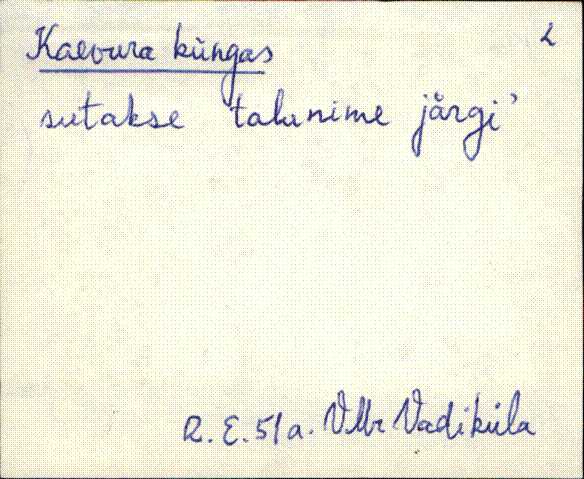 Kaevura küngas L
sutakse talunime järgi'
R. E. 51 a. VMr Vadiküla